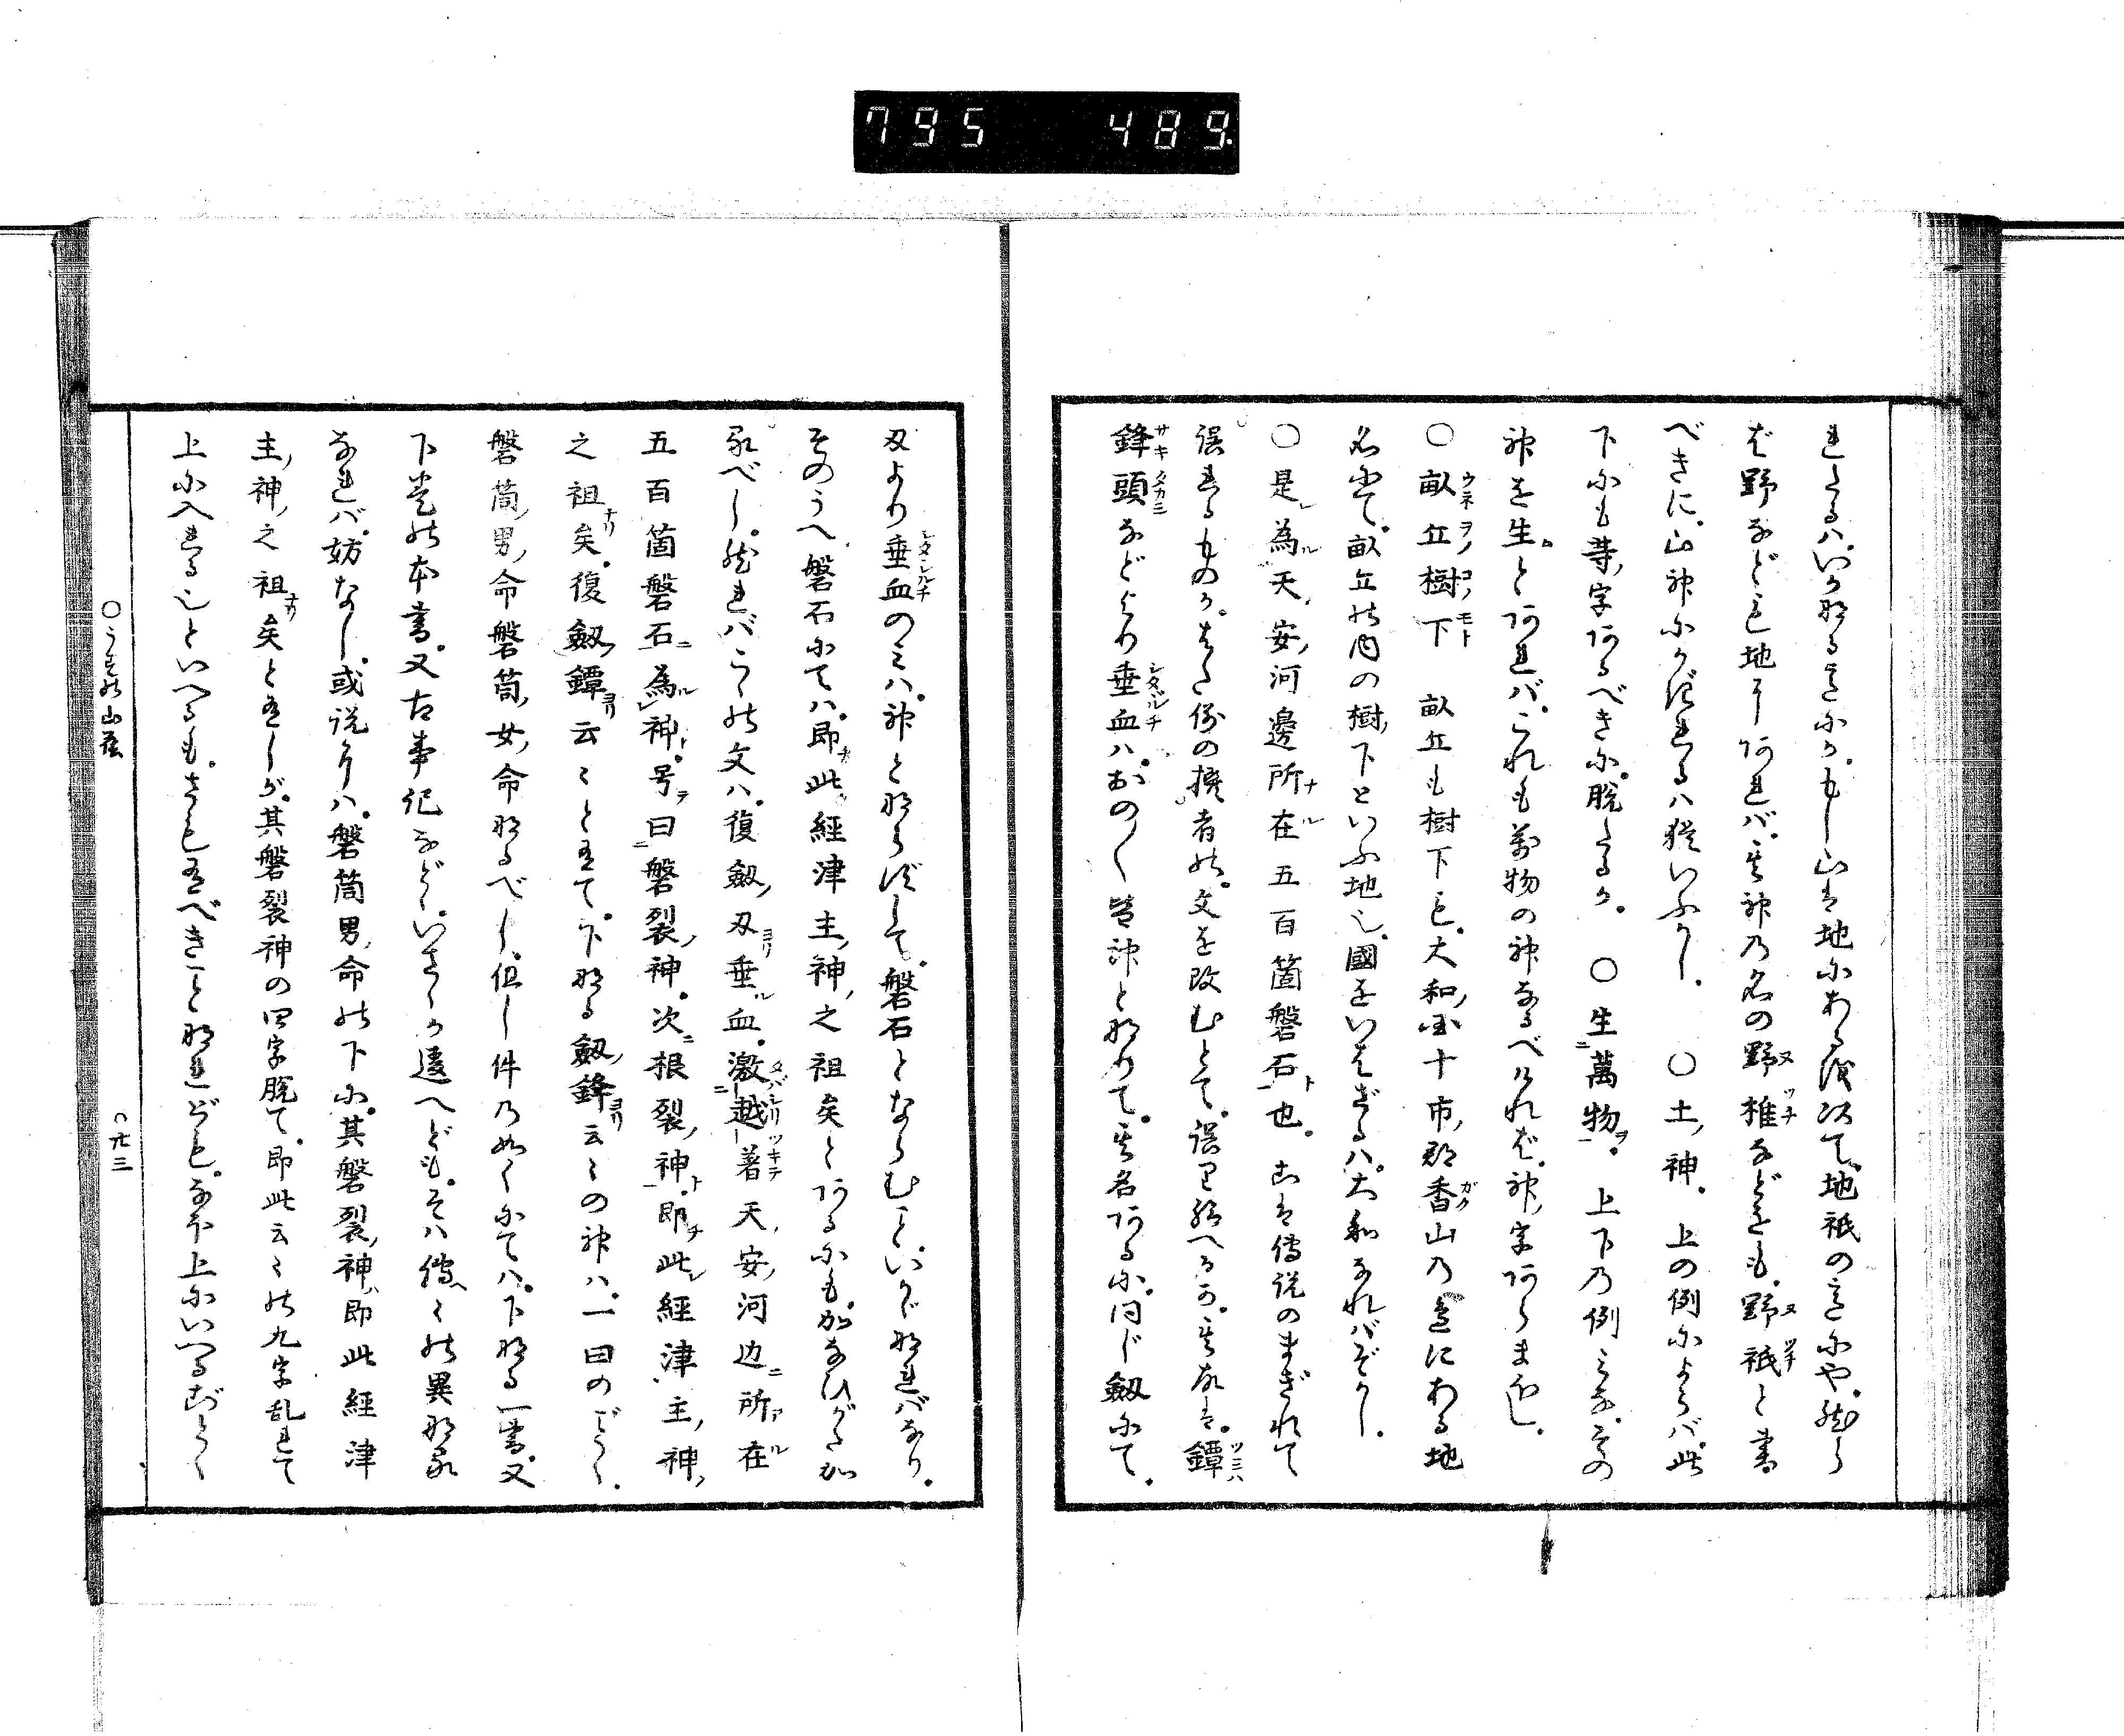 795 489
れたるハ、いかなる意にか、もし山は地にある故以て、地祇の意にや、然ら
ば野なども地にあれバ、其神乃名の野椎などをも、野祇と書
べきに、山神にかぎれるハ猶いぶかし、　○土神、上の例によらバ、此
下にも等字あるべきに、脱たるか、　○生萬物、上下乃例みな、その
神を生とあれバ、これも萬物の神なるべければ、神字あらまほし、
○畝丘樹下　畝丘も樹下も、大和国十市郡香山乃邊にある地
名にて、畝丘の内の樹下といふ地也、國をいはざるハ、大和なれバぞかし、
○是為天安河邊所在五百箇磐石也、こは傳説のまぎれて
誤れるものか、はた例の撰者の、文を改むとて、誤り給へるか、其故は、鐔
鋒頭などより垂血ハ、おの〱皆神と成りて、其名あるに、同じ劔にて、
刃より垂血のミハ、神と成らずして、磐石とならむこと、いかゞなれバなり、
そのうへ磐石にてハ、即此經津主神之祖矣とあるにも、かなひがたか
るべし、然れバこゝの文ハ、復劔刃垂血、激越著天安河边所在
五百箇磐石為神、号曰磐裂神、次根裂神、即此經津主神
之祖矣、復劔鐔云々と有て、下なる劔鋒云々の神ハ、一曰のごとく、
磐筒男命磐筒女命なるべし、但し件乃如くにてハ、下なる一書、又
下巻の本書、又古事記など、いさゝか違へども、そハ傳々の異なる
なれバ、妨なし、或説にハ、磐筒男命の下に、其磐裂神、即此經津
主神之祖矣と有しが、其磐裂神の四字脱て、即此云々の九字乱れて
上に入れる也といへるも、さも有べきことなれども、なほ上にいへるごとく
○うずの山蔭
○廿三